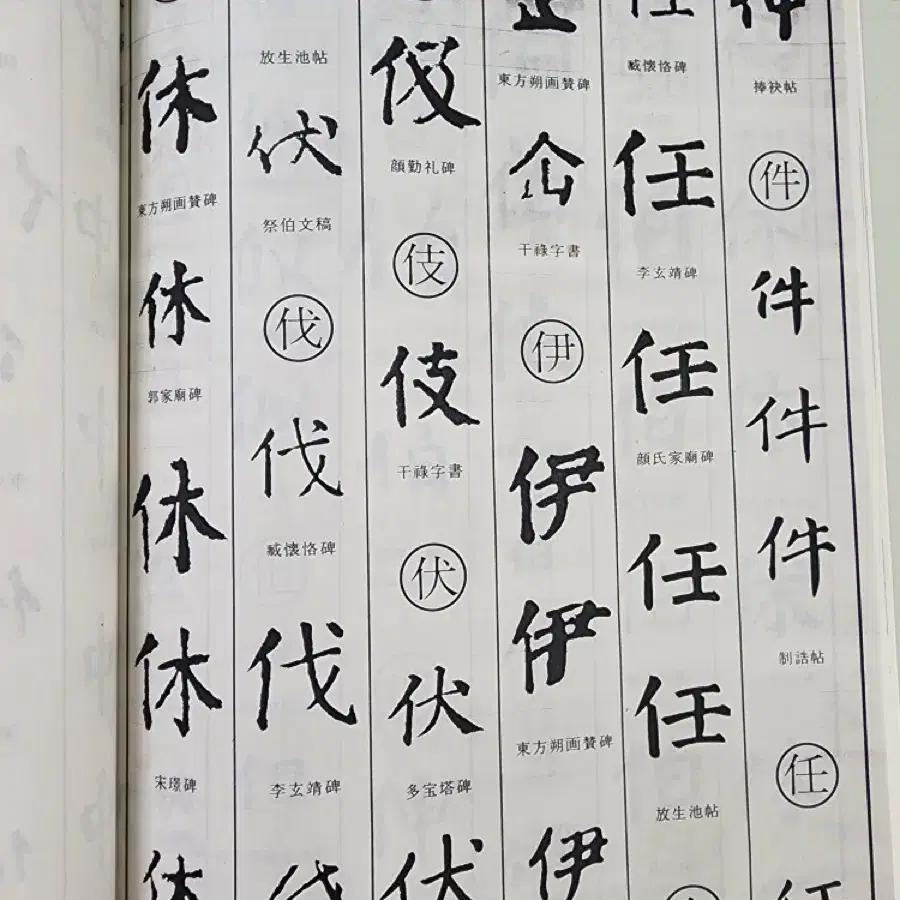 件
捧袂帖
件
件
件
件
制誥帖
任
任
任
臧懐恪碑
任
李玄靖碑
任
顔氏家廟碑
任
任
放生池帖
企
東方朔画賛碑
企
干祿字書
伊
伊
伊
東方朔画賛碑
伊
伎
顔勤礼碑
伎
伎
干祿字書
伏
伏
多宝塔碑
伏
放生池帖
伏
祭伯文稿
伐
伐
臧懐恪碑
伐
李玄靖碑
伐
休
東方朔画賛碑
休
郭家廟碑
休
休
宋璟碑
休